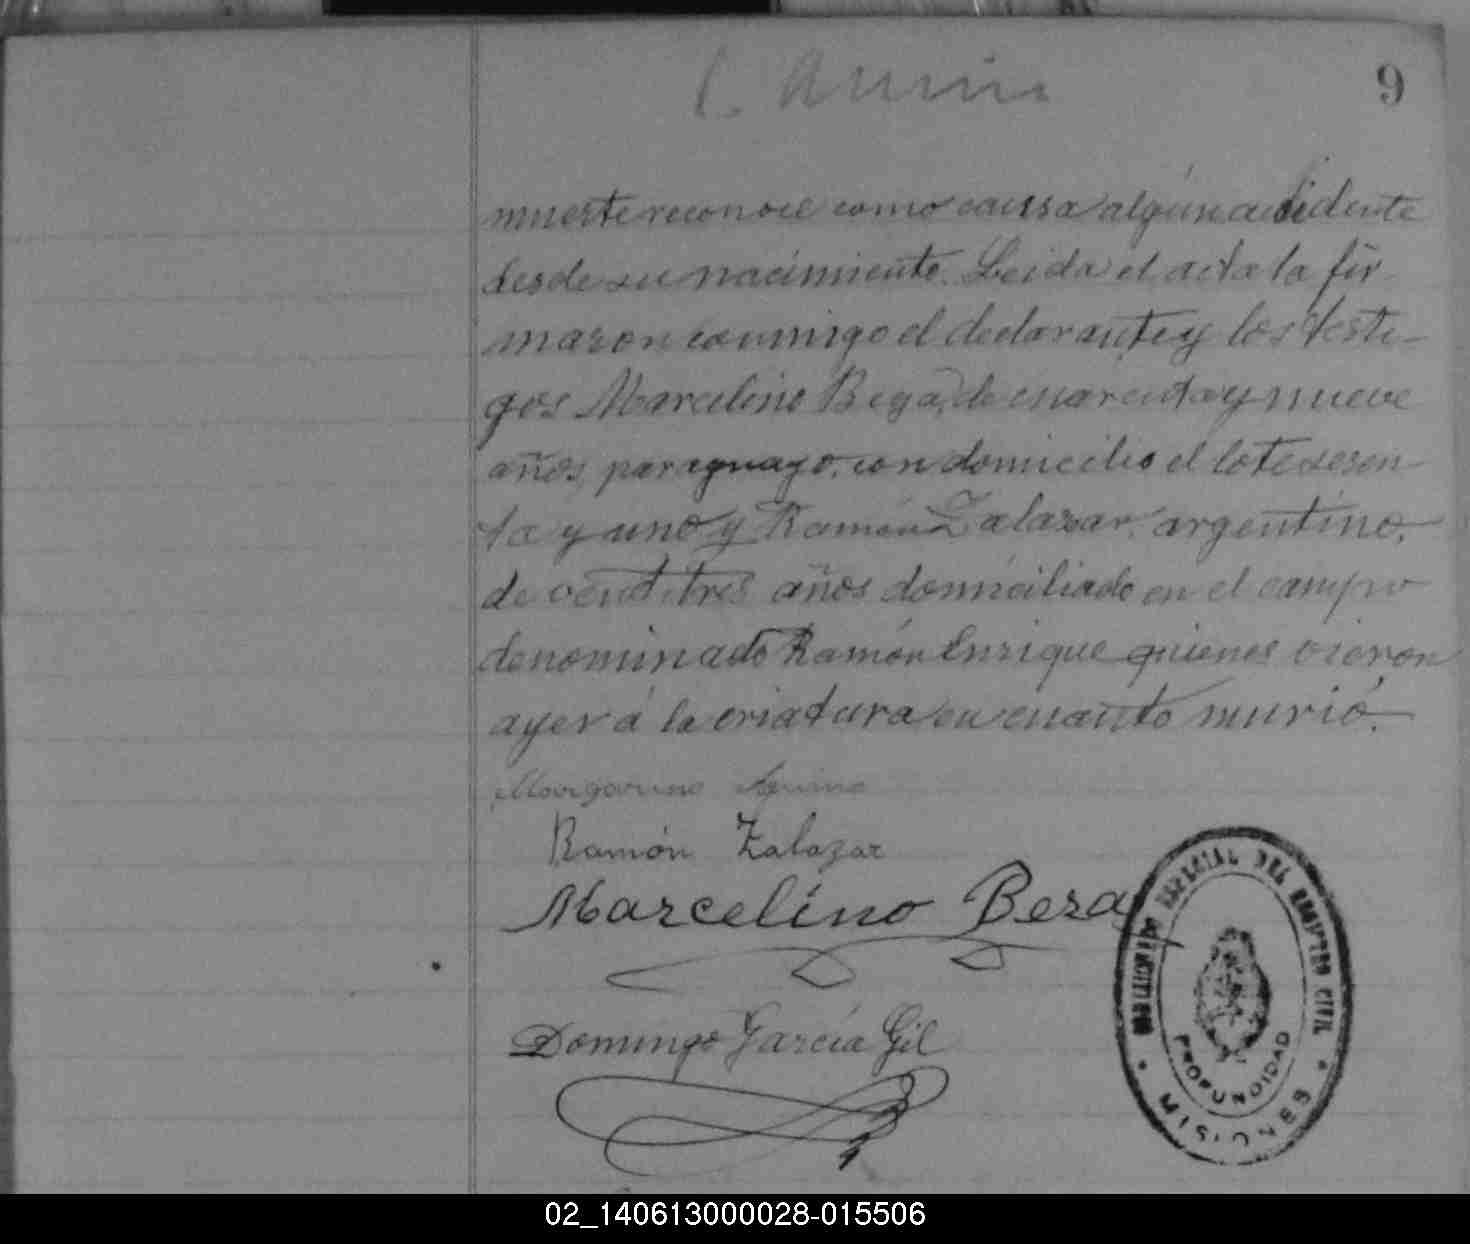 9
muerte reconoce como caussa algún accidente
desde su nacimiento. Leida el acta la fir-
maron conmigo el declarante y los testi-
gos Marcelino Bega, de cuarenta y nueve
años, paraguayo, con domicilio el lote sesen-
ta y uno y Ramón Zalazar, argentino,
de veintitres años domiciliado en el campo
denominado Ramón Enrique quienes vieron
ayer á la criatura en cuanto murió.
Margarino Aquino
Ramón Zalazar
Marcelino Bera
Domingo García Gil
ESPECIAL DEL REGISTRO CIVIL
PROFUNDIDAD
MISIONES
02_140613000028-015506